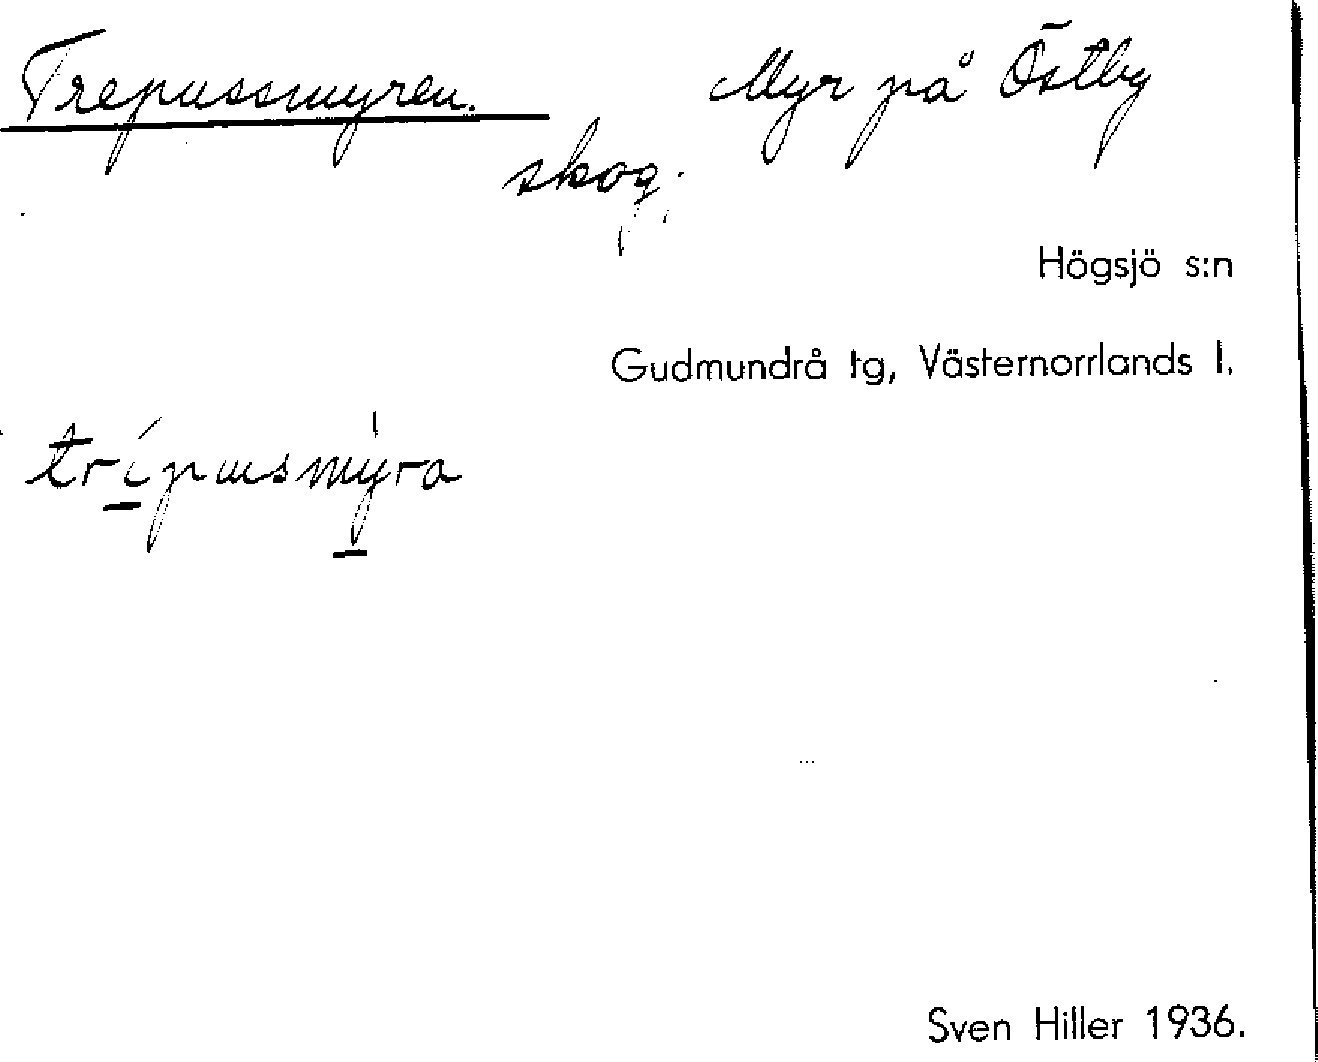 Trepussmyren. Myr på Östby
skog.
Högsjö s:n
Gudmundrå tg, Västernorrlands l.
trípusmýra
Sven Hiller 1936.